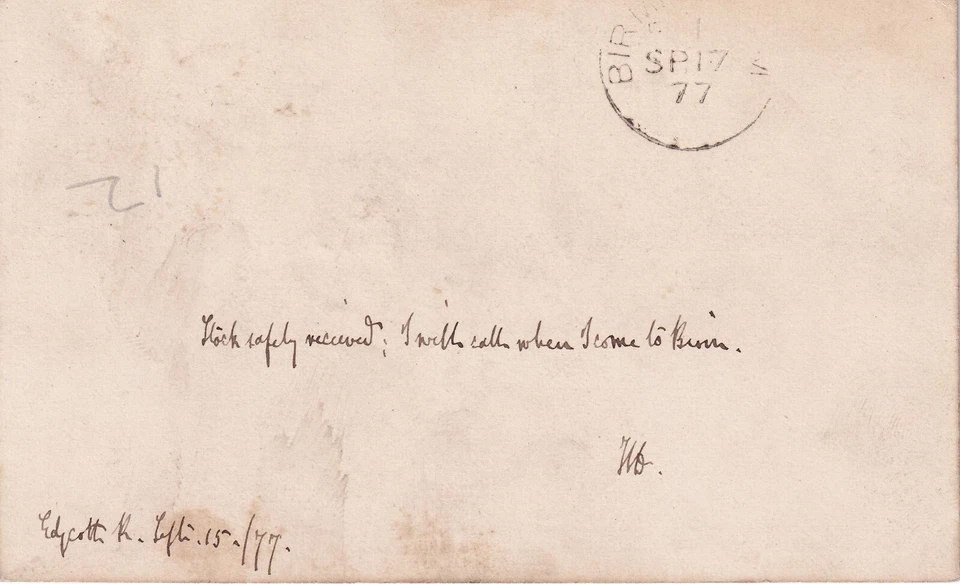 BIR M
SP 17
77
21
Stock safely received; I will call when I come to Birm.
Edgcott R. Sept. 15./77.